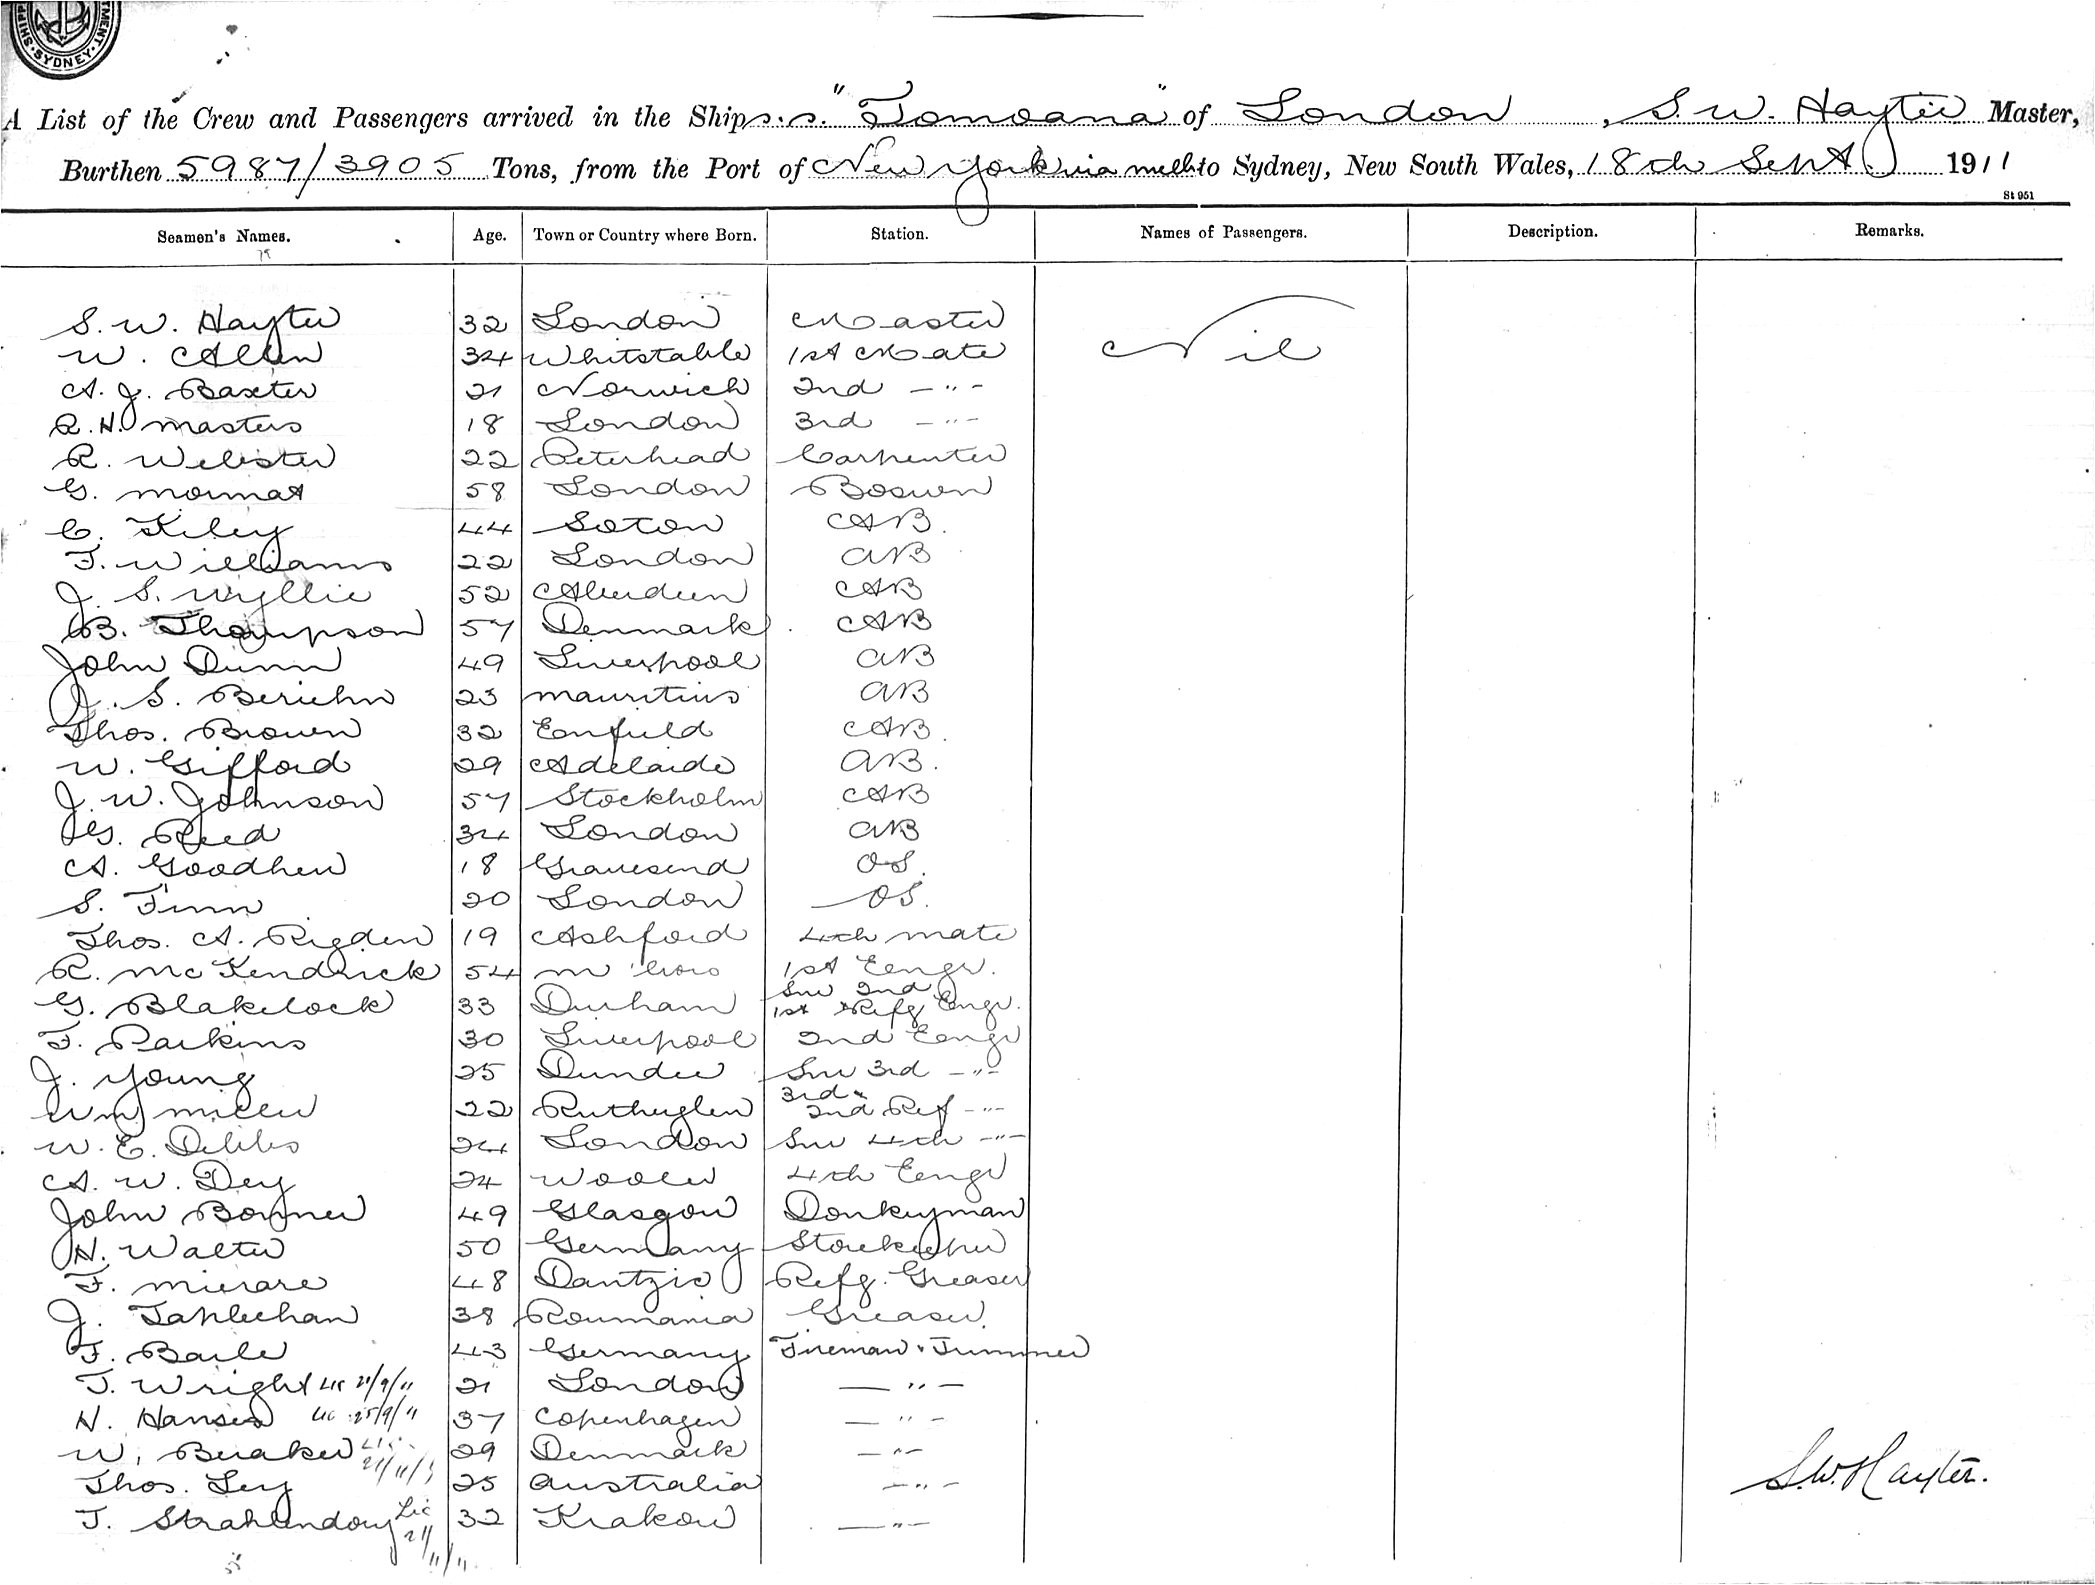 SHIPPING DEPARTMENT. SYDNEY
A List of the Crew and Passengers arrived in the Ship s.s. "Tomoana" of London, S. W. Hayter Master,
Burthen 5987/3905 Tons, from the Port of New York via Melb to Sydney, New South Wales, 18th Sept. 1911
St 951
Seamen's Names. Age. Town or Country where Born. Station. Names of Passengers. Description. Remarks.
S. W. Hayter 32 London Master
W. Allen 34 Whitstable 1st Mate Nil
A. J. Baxter 21 Norwich 2nd — " —
R. H. Masters 18 London 3rd — " —
R. Webster 22 Peterhead Carpenter
G. 58 London Boswn
C. Kiley 44 Soton AB.
F. Williams 22 London AB
J. S. Wyllie 52 Aberdeen AB
B. Thompson 57 Denmark AB
John Dunn 49 Liverpool AB
J. S. 23 Mauritius AB
Thos. Brown 32 Enfield AB.
W. Gifford 29 Adelaide AB.
J. W. Johnson 57 Stockholm AB
G. Reed 34 London AB
A. Goodhew 18 Gravesend OS.
S. Finn 20 London OS.
Thos. A. Rigden 19 Ashford 4th Mate
R. McKendrick 54 1st Eengr.
G. Blakelock 33 Durham Snr 2nd 1st Refg Engr.
F. Parkins 30 Liverpool 2nd Eengr
J. Young 25 Dundee Snr 3rd — " —
Wm Miller 22 Rutherglen 3rd & 2nd Ref — " —
W. E. Dibbs 24 London Snr 4th — " —
A. W. Dey 24 Wooler 4th Eengr
John Bonner 49 Glasgow Donkeyman
H. Walter 50 Germany Storekeeper
F. 48 Dantzic Refg. Greaser
J. 38 Roumania Greaser.
F. Baile 43 Germany Fireman & Trimmer
T. Wright Lic 21/9/11 21 London — " —
H. Hansen Lic 25/9/11 37 Copenhagen — " —
W. 29 Denmark — " —
Thos. Ley 25 Australia — " —
T. Lic 21/11/11 32 Krakow — " —
S.W. Hayter.